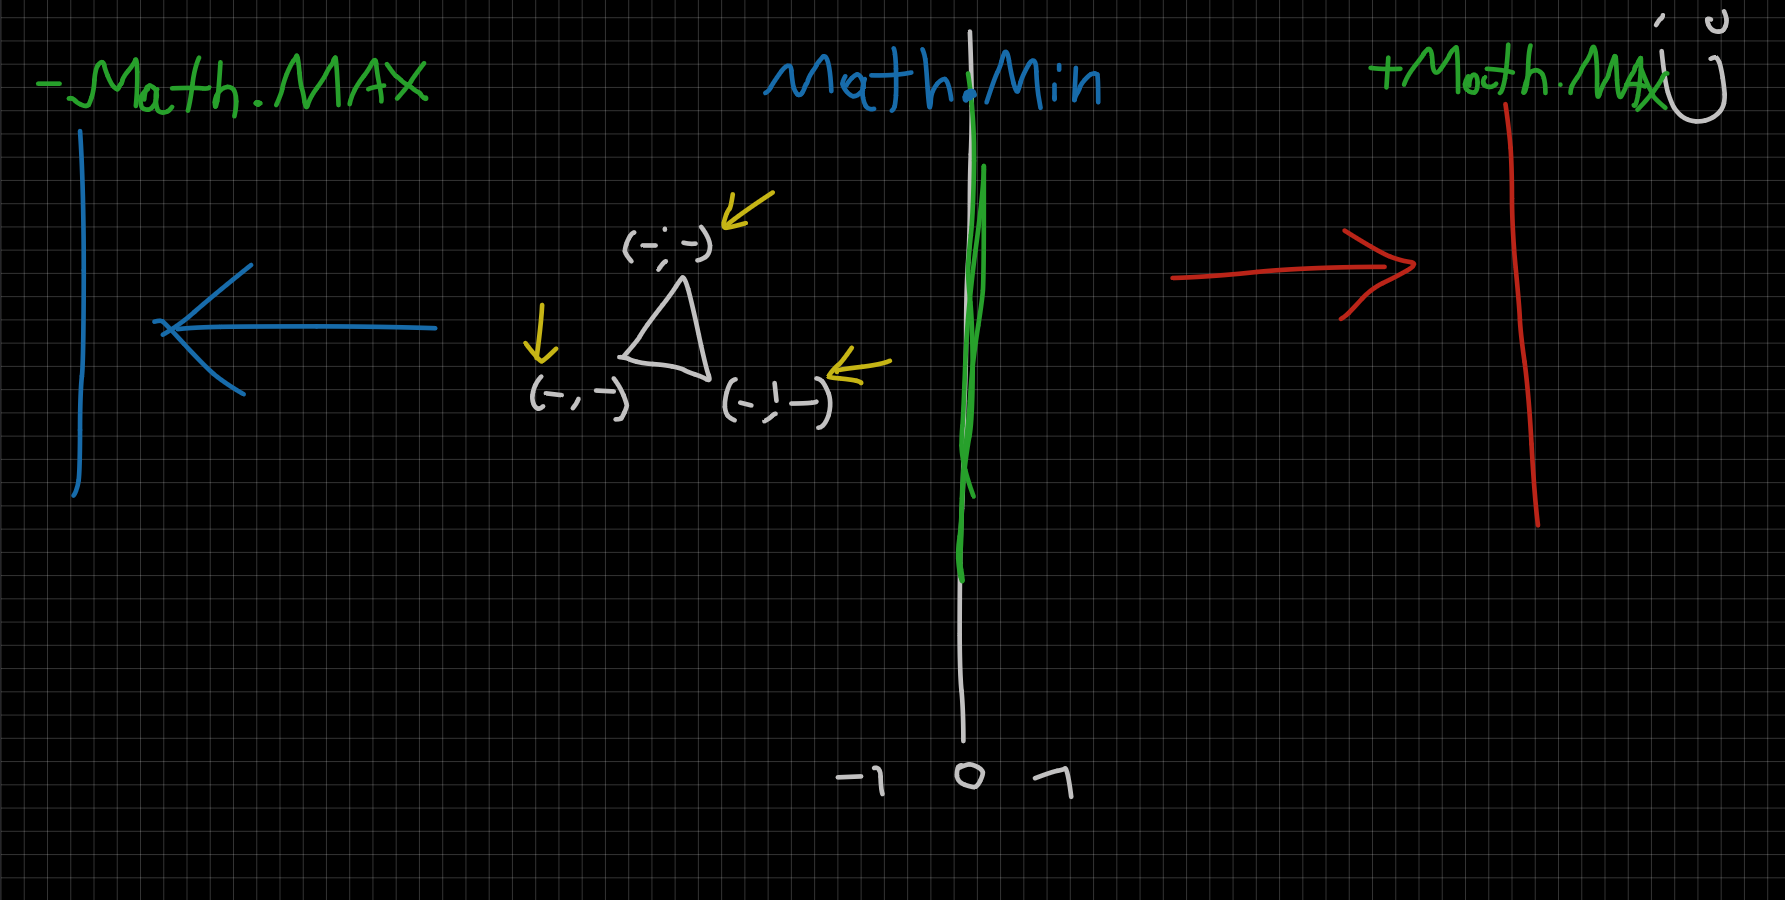 -Math.MAX
Math.Min
+Math.MAX
(-,-)
(-,-)
(-,-)
-1 0 1